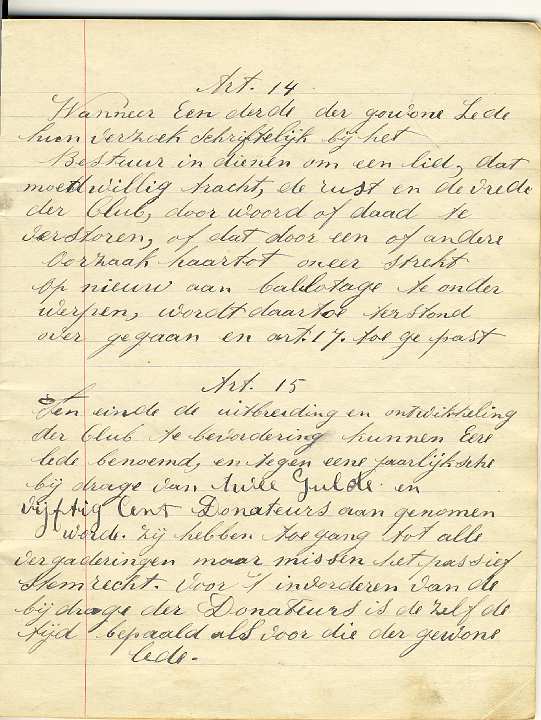 Art. 14
Wanneer Een derde der gewone Lede
hun verzoek schriftelijk bij het
Bestuur in dienen om een lid, dat
moedwillig tracht, de rust en de vrede
der Club, door woord of daad te
verstoren, of dat door een of andere
Oorzaak haar tot oneer strekt
op nieuw aan ballotage te onder
werpen, wordt daartoe terstond
over gegaan en art. 17. toe ge past
Art. 15
Ten einde de uitbreiding en ontwikkeling
der Club te bevordering kunnen Eere
lede benoemd, en tegen eene jaarlijksche
bij drage van twee Gulde en
vijftig Cent Donateurs aan genomen
worde. Zij hebben toegang tot alle
vergaderingen maar missen het passief
Stemrecht. Voor 't invorderen van de
bij drage der Donateurs is de zelf de
tijd bepaald als voor die der gewone
lede.